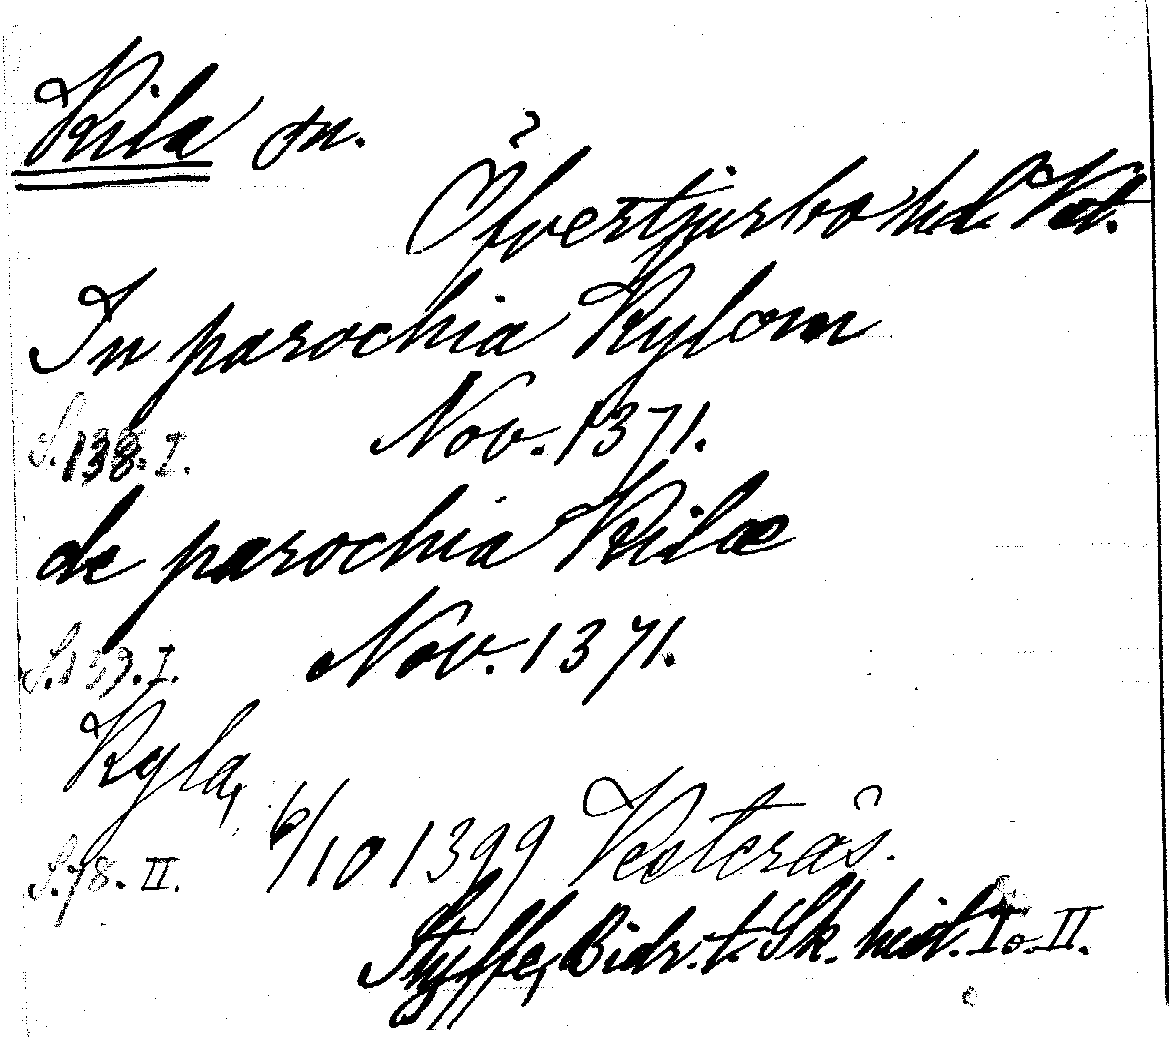 Kila sn.
Öfvertjurbo hd. Vstl.
In parochia Kylom
S. 138. I. Nov. 1371.
de parochia Kilæ
S. 139. I. Nov. 1371.
Kyla,
S. 78. II. 6/10 1399 Vesterås.
Styffe, Bidr. t. Sk. hist. I o. II.